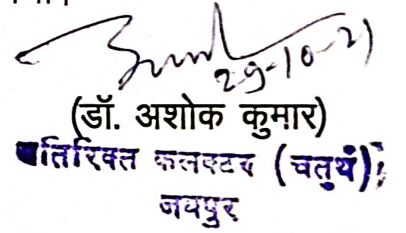 29-10-21
(डॉ. अशोक कुमार)
अतिरिक्त कलक्टर (चतुर्थ)
जयपुर